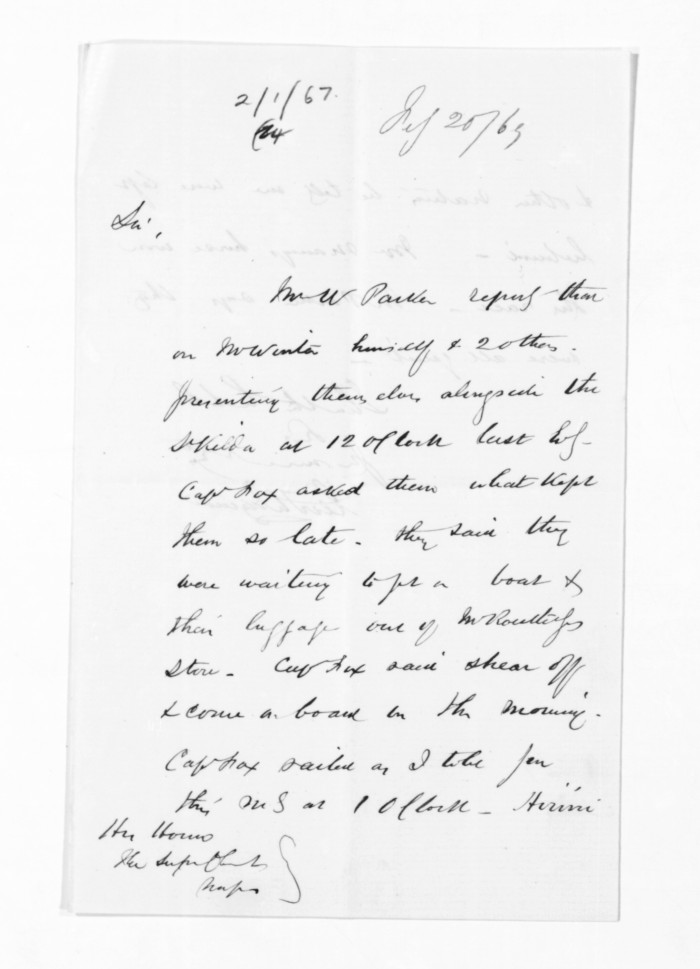 2/1/67.
20/69
Sir,
Mr W Parker reports that
on Mr Winter himself & 2 others.
presenting themselves alongside the
St Kilda at 12 O'Clock last Evg -
Capt Fox asked them what kept
them so late - they said they
were waiting to get a boat &
their luggage out of Mr Routledges
store - Capt Fox said shear off
& come on board in the morning -
Capt Fox sailed as I told you
this Mg at 1 O'Clock - Hirini
His Honor
The Supt
Napier